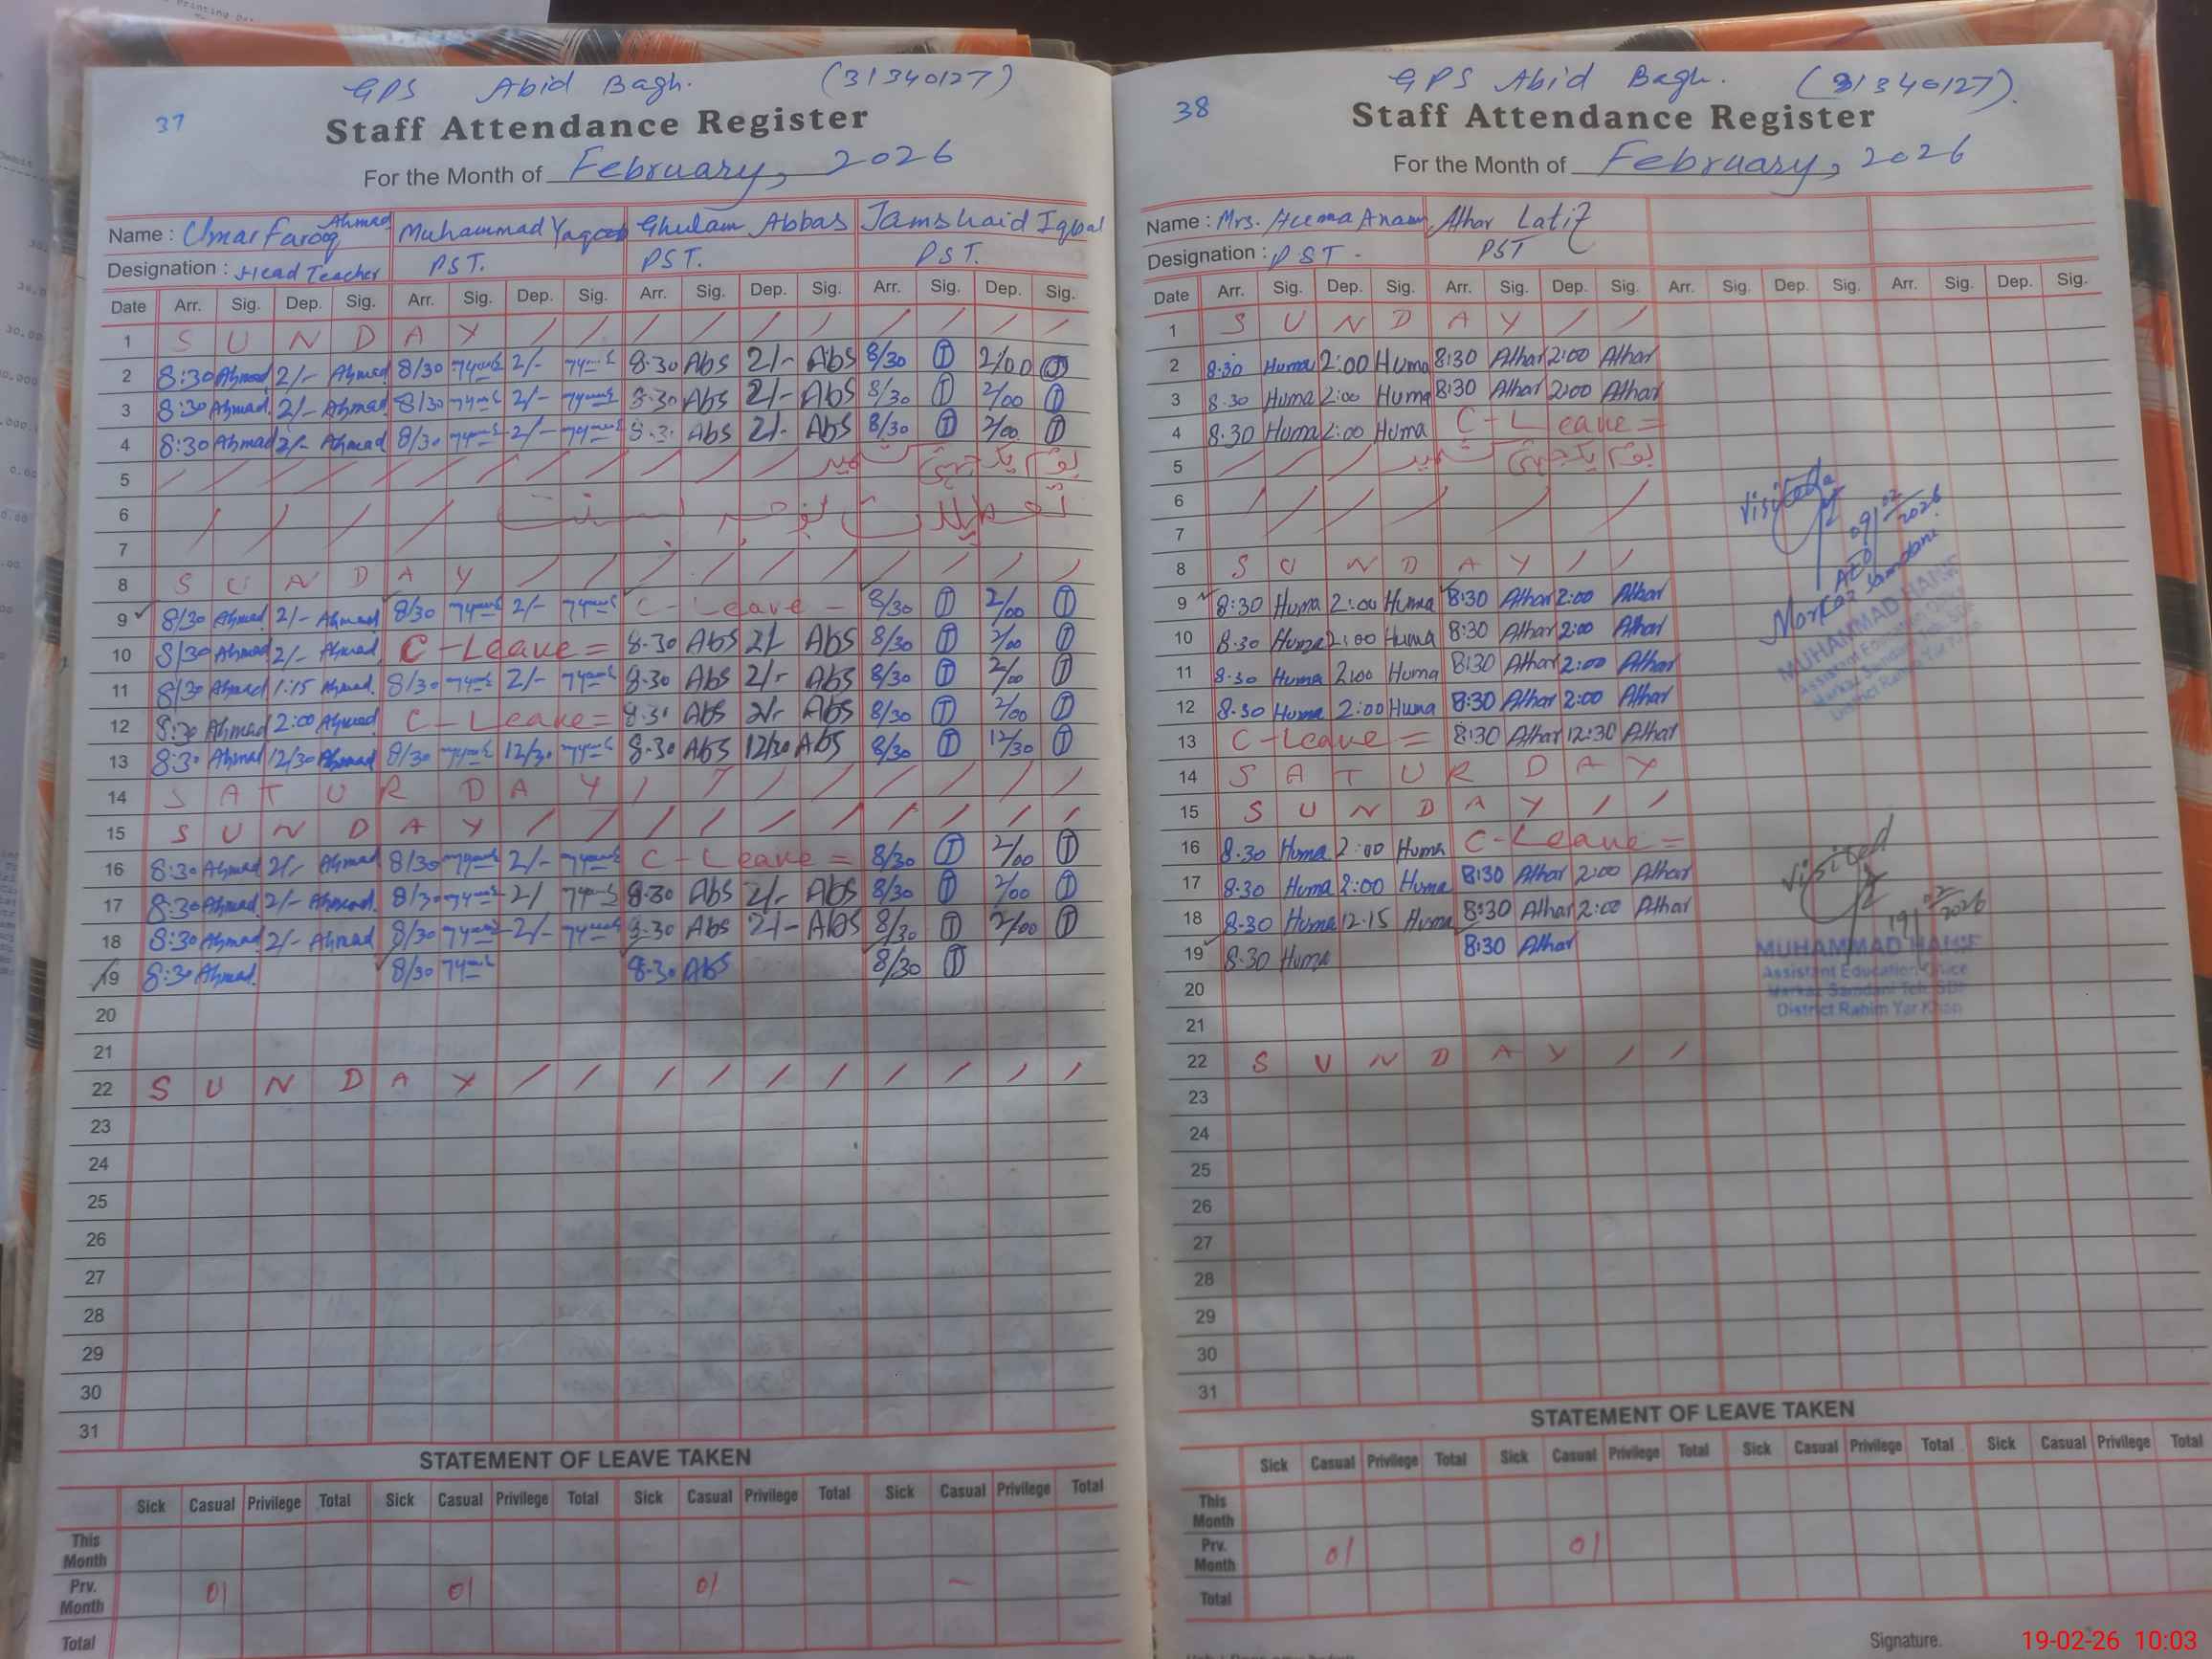 GPS Abid Bagh. (31340127)
37
Staff Attendance Register
For the Month of February, 2026
Name : Umar Farooq Ahmad Muhammad Yaqoob Ghulam Abbas Jamshaid Iqbal
Designation : Head Teacher PST. PST. PST.
Date Arr. Sig. Dep. Sig. Arr. Sig. Dep. Sig. Arr. Sig. Dep. Sig. Arr. Sig. Dep. Sig.
1 S U N D A Y / / / / / / / / / /
2 8:30 Ahmad 2/- Ahmad 8/30 2/- 8.30 Abs 2/- Abs 8/30 2/00
3 8:30 Ahmad 2/- Ahmad 8/30 2/- 8.30 Abs 2/- Abs 8/30 2/00
4 8:30 Ahmad 2/- Ahmad 8/30 2/- 8.30 Abs 2/- Abs 8/30 2/00
5 یوم یکجہتی کشمیر
6 تعطیلات بوجہ بسنت
7
8 S U N D A Y / / / / / / / / / /
9 8/30 Ahmad 2/- Ahmad 8/30 2/- C-Leave - 8/30 2/00
10 8/30 Ahmad 2/- Ahmad C-Leave = 8.30 Abs 2/- Abs 8/30 2/00
11 8/30 Ahmad 1:15 Ahmad 8/30 2/- 8.30 Abs 2/- Abs 8/30 2/00
12 8:30 Ahmad 2:00 Ahmad C-Leave = 8.30 Abs 2/- Abs 8/30 2/00
13 8:30 Ahmad 12/30 Ahmad 8/30 12/30 8.30 Abs 12/30 Abs 8/30 12/30
14 S A T U R D A Y / / / / / / / /
15 S U N D A Y / / / / / / / / / /
16 8:30 Ahmad 2/- Ahmad 8/30 2/- C-Leave = 8/30 2/00
17 8:30 Ahmad 2/- Ahmad 8/30 2/ 8.30 Abs 2/- Abs 8/30 2/00
18 8:30 Ahmad 2/- Ahmad 8/30 2/- 8.30 Abs 2/- Abs 8/30 2/00
19 8:30 Ahmad 8/30 8.30 Abs 8/30
20
21
22 S U N D A Y / / / / / / / / / /
23
24
25
26
27
28
29
30
31
STATEMENT OF LEAVE TAKEN
Sick Casual Privilege Total Sick Casual Privilege Total Sick Casual Privilege Total Sick Casual Privilege Total
This Month
Prv. Month 01 01 01 -
Total
GPS Abid Bagh. (31340127).
38
Staff Attendance Register
For the Month of February, 2026
Name : Mrs. Huma Anam Athar Latif
Designation : PST - PST
Date Arr. Sig. Dep. Sig. Arr. Sig. Dep. Sig. Arr. Sig. Dep. Sig. Arr. Sig. Dep. Sig.
1 S U N D A Y / /
2 8.30 Huma 2:00 Huma 8:30 Athar 2:00 Athar
3 8.30 Huma 2:00 Huma 8:30 Athar 2:00 Athar
4 8.30 Huma 2:00 Huma C-Leave =
5 یوم یکجہتی کشمیر
6
7
8 S U N D A Y / /
9 8:30 Huma 2:00 Huma 8:30 Athar 2:00 Athar
10 8.30 Huma 2:00 Huma 8:30 Athar 2:00 Athar
11 8.30 Huma 2:00 Huma 8:30 Athar 2:00 Athar
12 8.30 Huma 2:00 Huma 8:30 Athar 2:00 Athar
13 C-Leave = 8:30 Athar 12:30 Athar
14 S A T U R D A Y
15 S U N D A Y / /
16 8.30 Huma 2:00 Huma C-Leave =
17 8.30 Huma 2:00 Huma 8:30 Athar 2:00 Athar
18 8.30 Huma 12.15 Huma 8:30 Athar 2:00 Athar
19 8.30 Huma 8:30 Athar
20
21
22 S U N D A Y / /
23
24
25
26
27
28
29
30
31
Visited
09/02/2026
AEO
Markaz Samdani
MUHAMMAD HANIF
Assistant Education Office
Visited
19/02/2026
MUHAMMAD HANIF
Assistant Education Office
Markaz Samdani Teh. SDK
District Rahim Yar Khan
STATEMENT OF LEAVE TAKEN
Sick Casual Privilege Total Sick Casual Privilege Total Sick Casual Privilege Total Sick Casual Privilege Total
This Month
Prv. Month 01 01
Total
Signature.
19-02-26 10:03